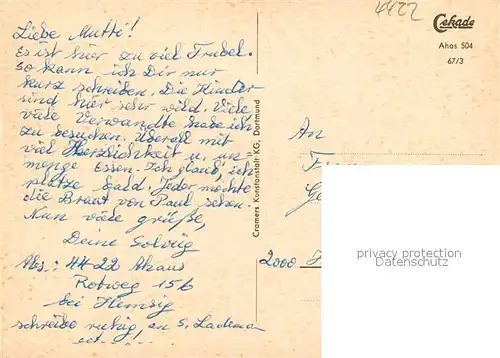 Liebe Mutti!
Es ist hier zu viel Trubel.
so kann ich Dir nur
kurz schreiben. Die Kinder
sind hier sehr wild. Viele
viele Verwandte habe ich
zu besuchen. Überall mit
viel Herzlichkeit u. un-
menge Essen. Ich glaub', ich
platze bald. Jeder möchte
die Braut von Paul sehen.
Nun viele grüße,
Deine Solveig
Abs.: 4422 Ahaus
Rotweg 15b
bei Hemsig
schreibe ruhig, an S. Lademan
Cramers Kunstanstalt KG, Dortmund
4422
Cekade
Ahas 504
67/3
An
2000
privacy protection
Datenschutz